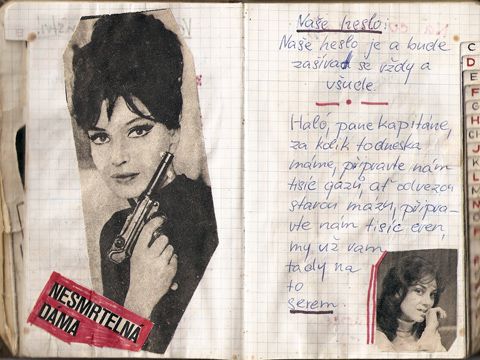 NESMRTELNÁ
DÁMA
Naše heslo:
Naše heslo je a bude
zašívat se vždy a
všude.
Haló, pane kapitáne,
za kolik to dneska
máme, připravte nám
tisíc gázů, ať odvezou
starou mázu, připra-
vte nám tisíc even,
my už vam
tady na
to
serem.
C
D
E
F
G
H
CH
J
K
L
M
N